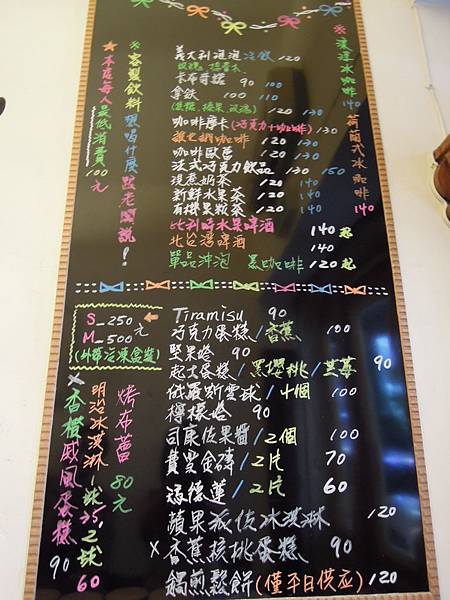 義大利泡泡冰飲 120
卡布奇諾 90 100
拿鐵 100 110
120 130
咖啡摩卡(巧克力+咖啡) 130
維也納咖啡 120 130
咖啡歐蕾 120 130
法式巧克力飲品 130 150
現煮奶茶 120 140
新鮮水果茶 120 140
有機果粒茶 120 140
比利時水果啤酒 140起
北台灣啤酒 140
單品沖泡 黑咖啡 120起
※漂浮冰咖啡 140
荷蘭式冰咖啡 140
※客製飲料想喝什麼跟老闆說!
★本店每人最低消費100元
S_250
M_500元
(外帶冷凍盒裝)
Tiramisu 90
巧克力蛋糕/香蕉 100
堅果塔 90
起士蛋糕/黑櫻桃/藍莓 90
俄羅斯雪球/4個 100
檸檬塔 90
司康佐果醬/2個 100
費雪金磚/2片 70
瑪德蓮/2片 60
蘋果派佐冰淇淋 120
×香蕉核桃蛋糕 90
鍋煎鬆餅(僅平日供應) 120
烤布蕾 80元
明治冰淇淋1球35,2球60
×香橙戚風蛋糕 90